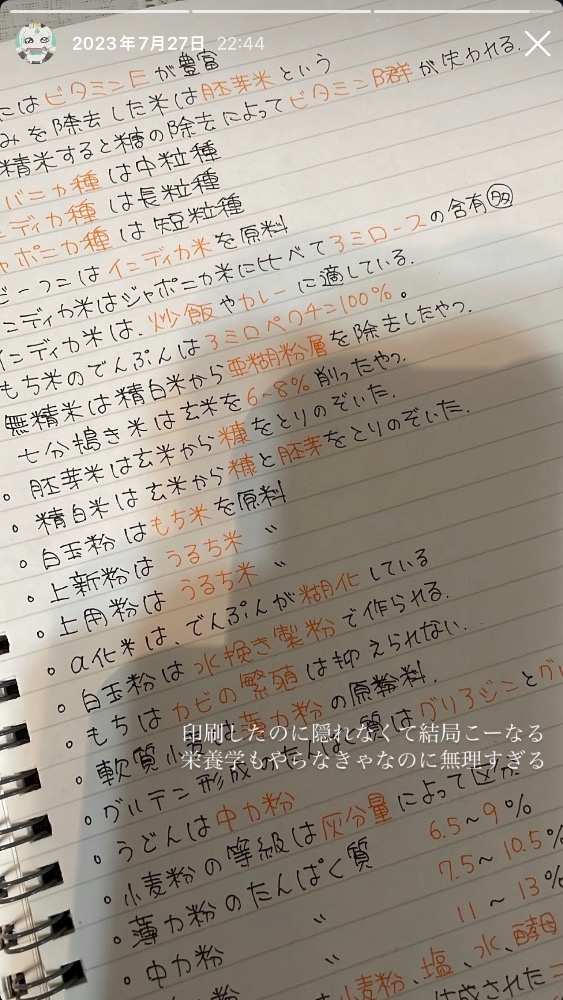 2023年7月27日 22:44
には ビタミンE が豊富
みを除去した米は胚芽米という
精米すると糖の除去によってビタミンB群が失われる。
バニカ種は中粒種
ンディカ種は長粒種
ャポニカ種は短粒種
ビーフンはインディカ米を原料
ンディカ米はジャポニカ米に比べてアミロースの含有多
インディカ米は、炒飯やカレーに適している。
もち米のでんぷんはアミロペクチン100%。
無精米は精白米から亜糊粉層を除去したやつ。
七分搗き米は玄米を6~8%削ったやつ。
。胚芽米は玄米から糠をとりのぞいた。
。精白米は玄米から糠と胚芽をとりのぞいた。
・白玉粉はもち米を原料
。上新粉は うるち米 〃
。上用粉は うるち米 〃
。α化米は、でんぷんが糊化している
・白玉粉は水挽き製粉で作られる。
・もちはカビの繁殖は抑えられない。
・軟質小麦は薄力粉の原料。
・グルテン形成のたんぱく質はグリアジンとグル
・うどんは中力粉
・小麦粉の等級は灰分量によって区分
・薄力粉のたんぱく質 6.5~9%
・中力粉 〃 7.5~10.5%
粉 〃 11~13%
小麦粉、塩、水、酵母
成された
印刷したのに隠れなくて結局こーなる
栄養学もやらなきゃなのに無理すぎる